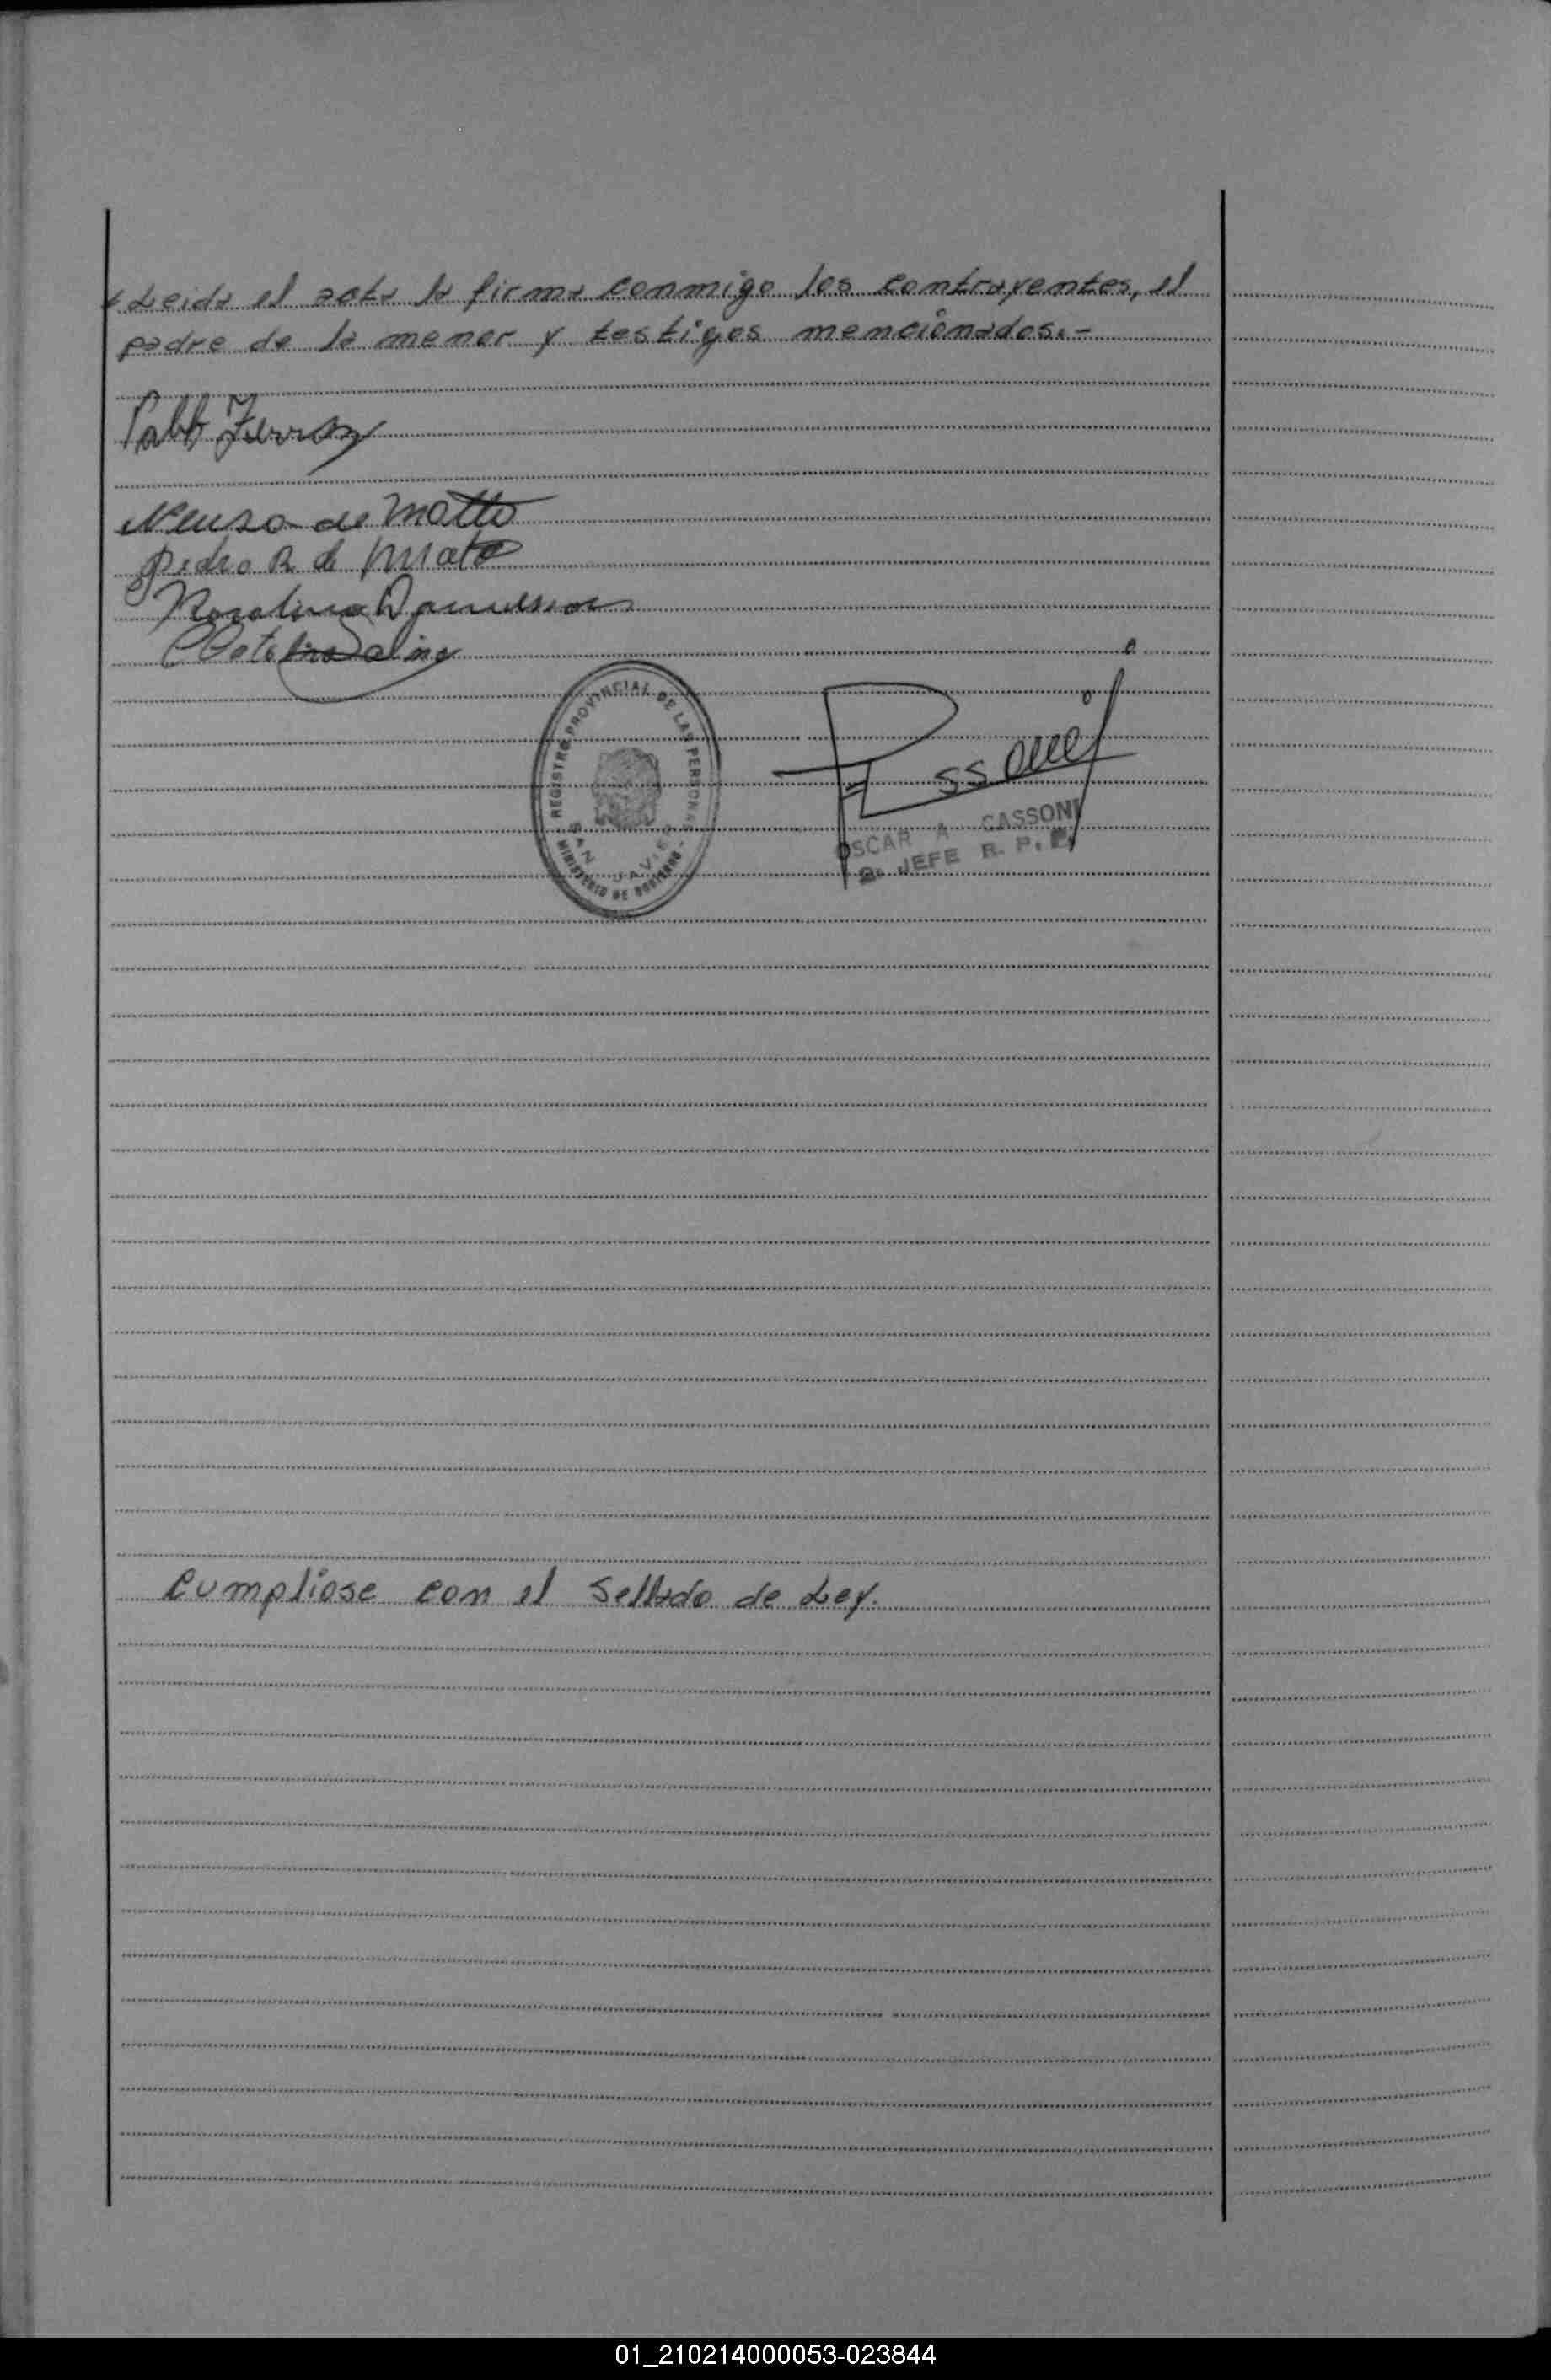 Leida el acta la firma conmigo los contrayentes, el
padre de la menor y testigos mencionados.-
Pablo Ferraz
Neusa de Matto
Pedro R de Mato
Catalina
REGISTRO PROVINCIAL DE LAS PERSONAS
SAN JAVIER
MINISTERIO DE GOBIERNO
OSCAR A CASSONI
JEFE R. P. P.
Cumpliose con el Sellado de Ley.
01_210214000053-023844